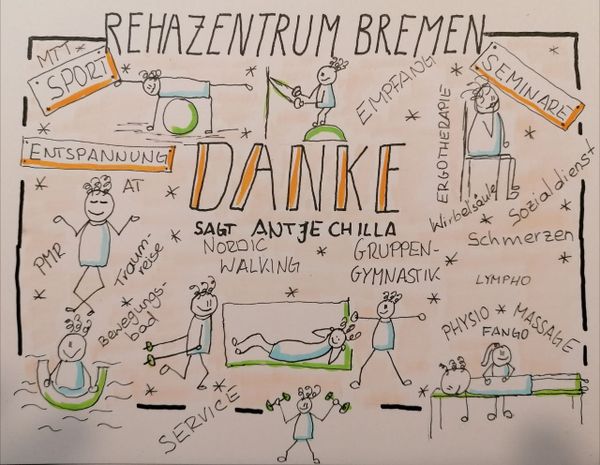 REHAZENTRUM BREMEN
MTT
SPORT
EMPFANG
SEMINARE
ERGOTHERAPIE
ENTSPANNUNG
AT
DANKE
SAGT ANTJE CHILLA
Wirbelsäule
Sozialdienst
Schmerzen
PMR
Traum-
reise
NORDIC
WALKING
GRUPPEN-
GYMNASTIK
LYMPHO
Bewegungs-
bad
PHYSIO * MASSAGE
FANGO
SERVICE